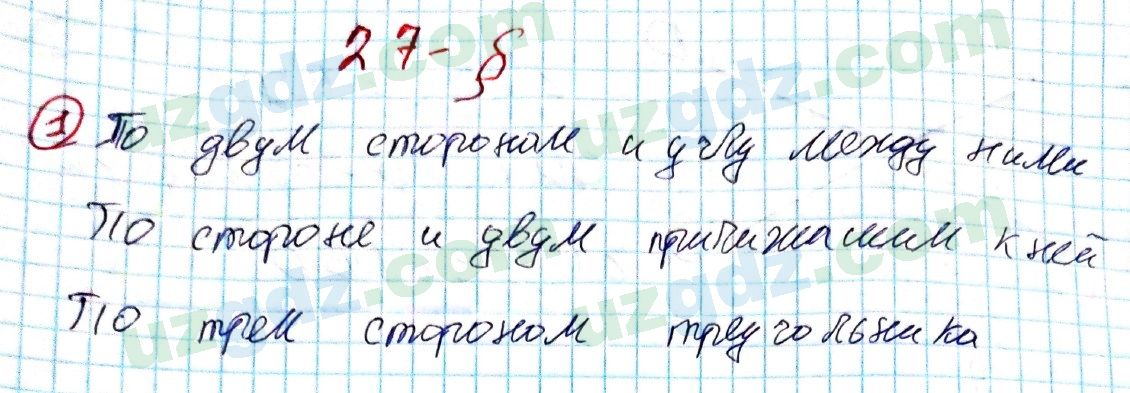 27-§
1 По двум сторонам и углу между ними
По стороне и двум прилижашим к ней
По трем сторонам треугольника